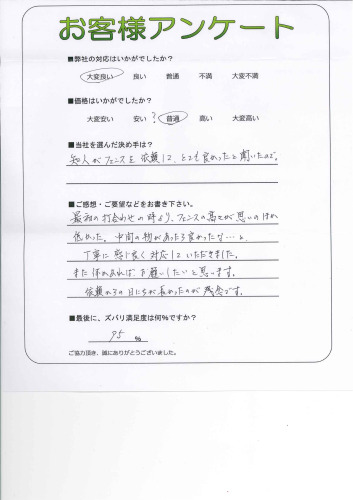 お客様アンケート
■弊社の対応はいかがでしたか？
大変良い 良い 普通 不満 大変不満
■価格はいかがでしたか？
大変安い 安い ? 普通 高い 大変高い
■当社を選んだ決め手は？
知人がフェンスを依頼して、とても良かったと聞いたので。
■ご感想・ご要望などをお書き下さい。
最初の打合わせの時より、フェンスの高さが思いのほか
低かった。中間の物があったら良かったな…と、
丁寧に感じ良く対応していただきました。
また何かあれば、お願いしたいと思います。
依頼からの日にちが長かったのが残念です。
■最後に、ズバリ満足度は何％ですか？
95 %
ご協力頂き、誠にありがとうございました。